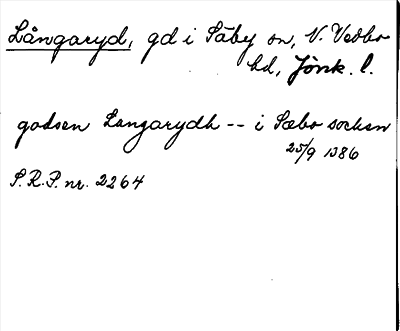 Långaryd, gd i Säby sn, N. Vedbo
hd, Jönk. l.
godsen Langarydh -- i Sæbo socken
25/9 1386
S.R.P. nr. 2264